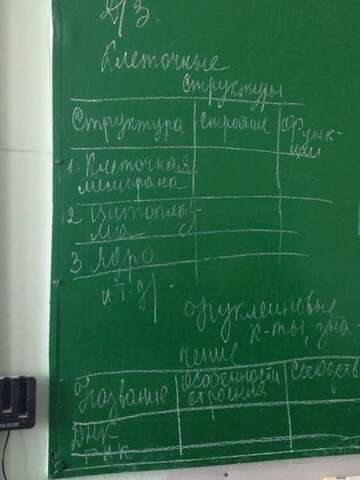 Д/З.
Клеточные
структуры
Структура строение Функ-
ции
1. Клеточная
мембрана
2 Цитоплаз-
ма
3 Ядро
и т. д.
нуклеиновые
к-ты, зна
чение
Название особенности
строения свойств
ДНК
РНК